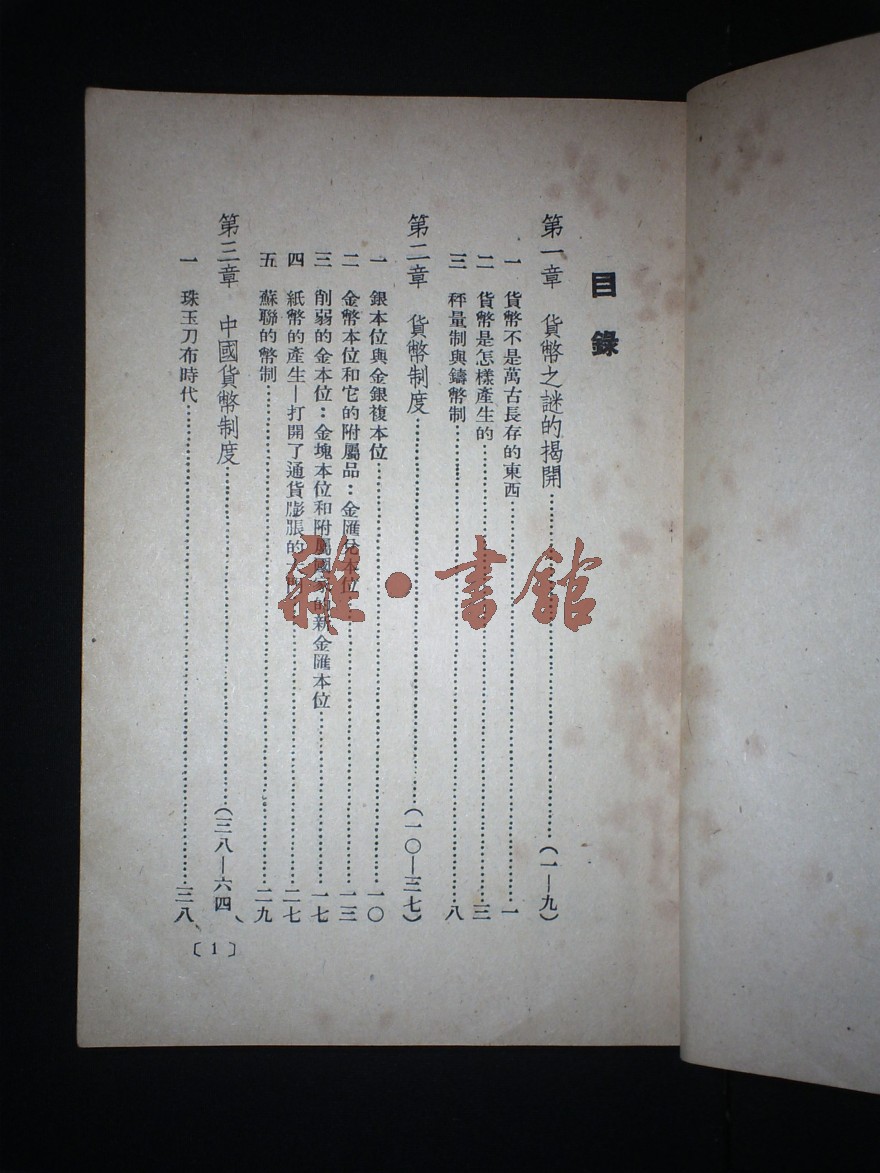 目錄
第一章　貨幣之謎的揭開……………………（一—九）
一　貨幣不是萬古長存的東西……………………一
二　貨幣是怎樣產生的……………………三
三　秤量制與鑄幣制……………………八
第二章　貨幣制度……………………（一〇—三七）
一　銀本位與金銀複本位……………………一〇
二　金幣本位和它的附屬品：金匯兌本位……………………一三
三　削弱的金本位：金塊本位和附屬國家的新金匯本位……………………一七
四　紙幣的產生—打開了通貨膨脹的……………………二七
五　蘇聯的幣制……………………二九
第三章　中國貨幣制度……………………（三八—六四）
一　珠玉刀布時代……………………三八
〔1〕
雜·書館